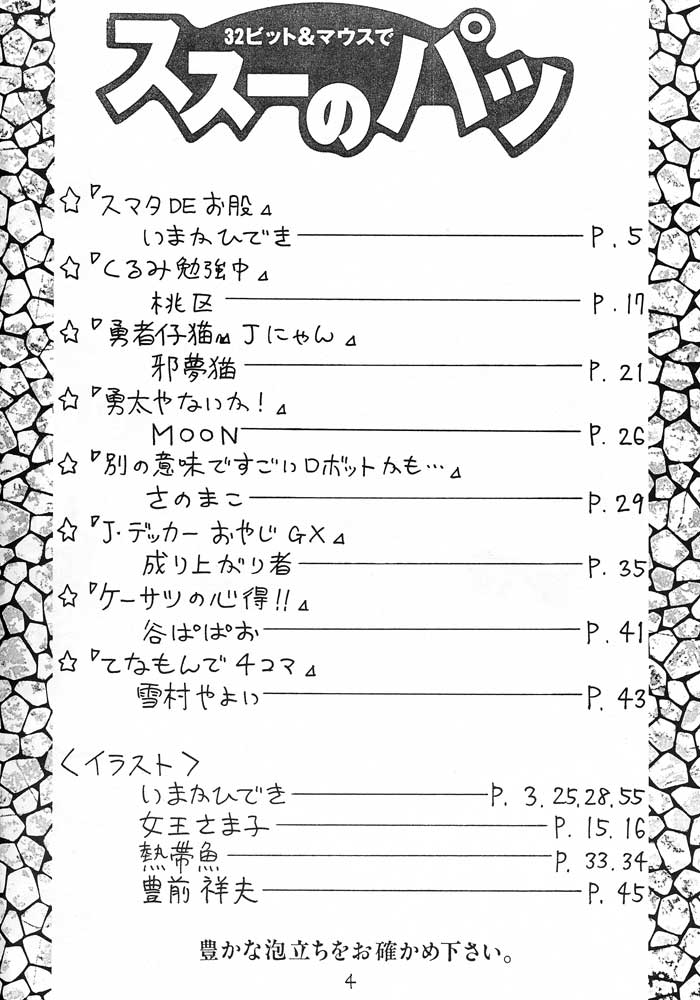 32ビット&マウスで
ススーのパッ
☆『スマタDEお股』
いまかひでき P. 5
☆『くるみ勉強中』
桃区 P. 17
☆『勇者仔猫 Jにゃん』
邪夢猫 P. 21
☆『勇太やないか!』
MOON P. 26
☆『別の意味ですごいロボットかも…』
さのまこ P. 29
☆『J・デッカー おやじGX』
成り上がり者 P. 35
☆『ケーサツの心得!!』
谷ぱぱお P. 41
☆『てなもんで4コマ』
雪村やよい P. 43
〈イラスト〉
いまかひでき P. 3,25,28,55
女王さま子 P. 15,16
熱帯魚 P. 33,34
豊前 祥夫 P. 45
豊かな泡立ちをお確かめ下さい。
4